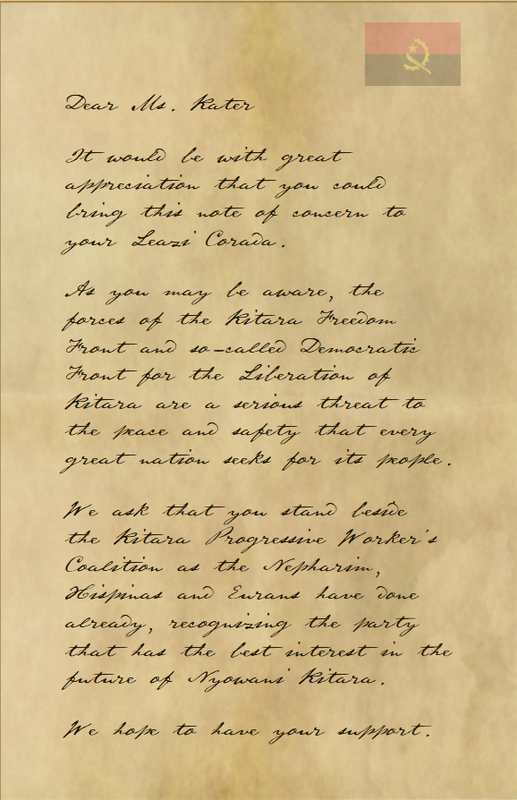 Dear Ms. Kater
It would be with great
appreciation that you could
bring this note of concern to
your Leazi Corada.
As you may be aware, the
forces of the Kitara Freedom
Front and so-called Democratic
Front for the Liberation of
Kitara are a serious threat to
the peace and safety that every
great nation seeks for its people.
We ask that you stand beside
the Kitara Progressive Worker's
Coalition as the Nepharim,
Hispinas and Eurans have done
already, recognizing the party
that has the best interest in the
future of Nyowani Kitara.
We hope to have your support.